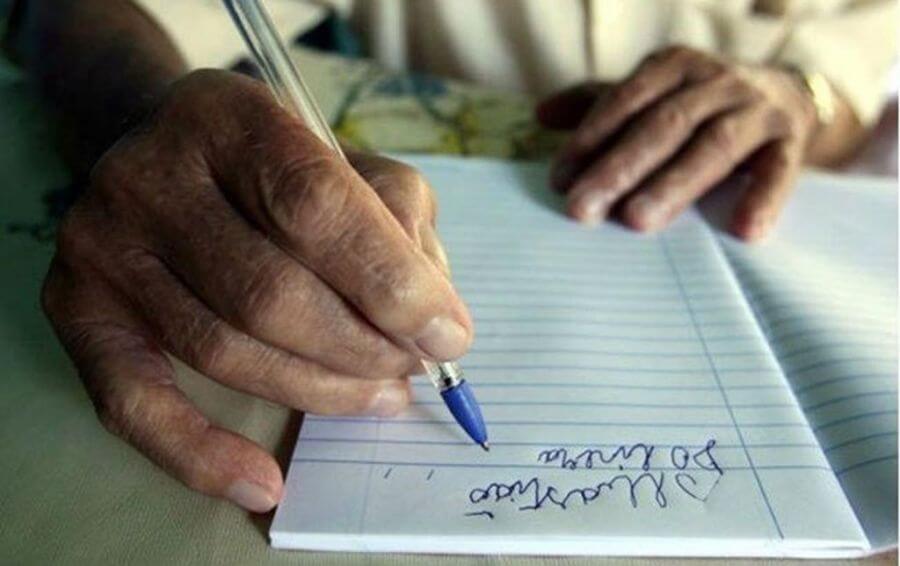 Sebastião
DO livera